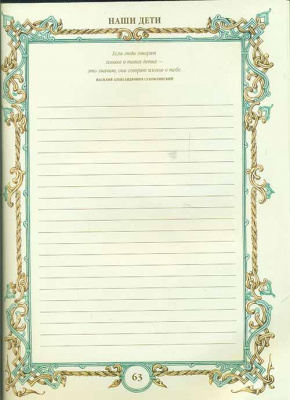 НАШИ ДЕТИ
Если люди говорят
плохо о твоих детях —
это значит, они говорят плохо о тебе.
ВАСИЛИЙ АЛЕКСАНДРОВИЧ СУХОМЛИНСКИЙ
63